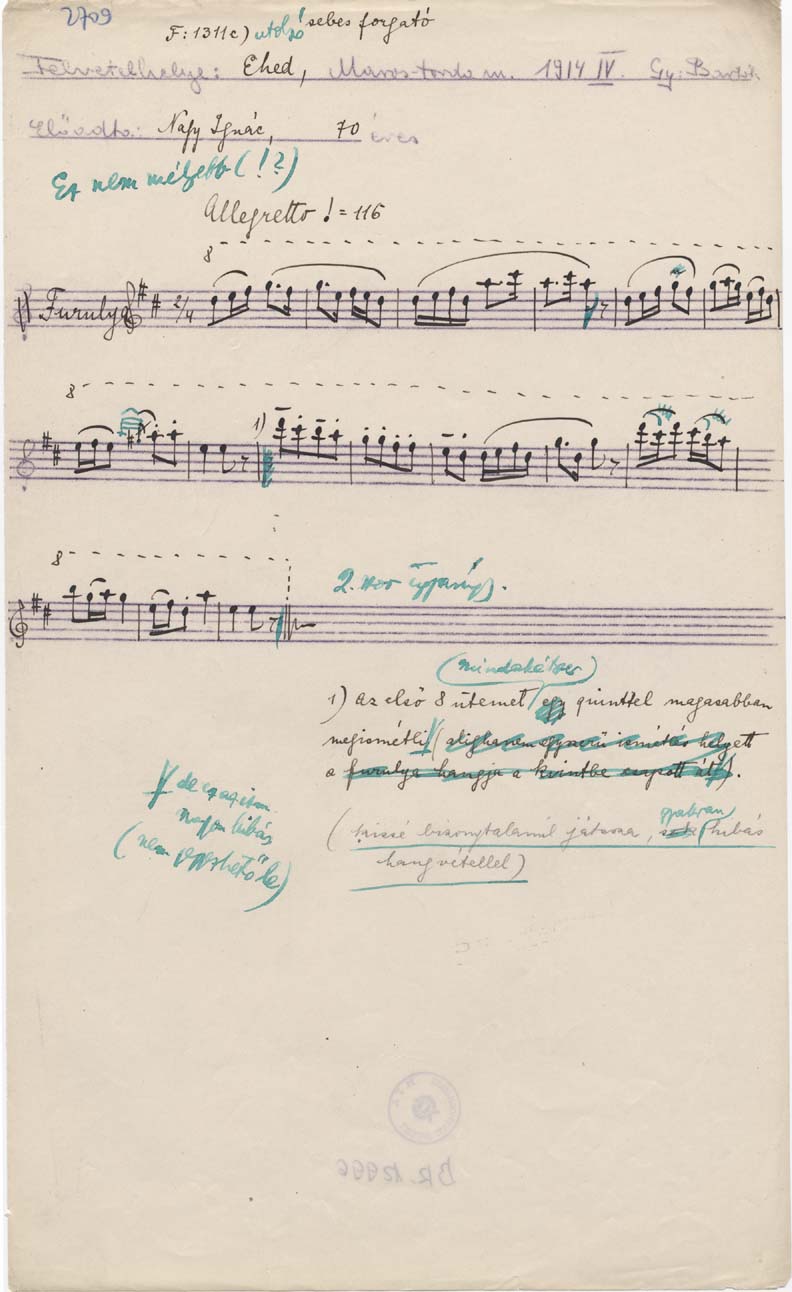 2709
F: 1311c) utolsó sebes forgató
Felvétel helye: Ehed, Maros-torda m. 1914 IV. Gy: Bartók
Előadta: Nagy Ignác, 70 éves
Ez nem mélyebb (!?)
Allegretto = 116
8
Furulya 2/4
8
1)
8
2.
(mindakétszer)
1) az első 8 ütemet egy quinttel magasabban
megismétli (alighanem egyszerű ismétlés helyett
a furulya hangja a kvintbe csapott át).
de
nagyon hibás
(nem
(kissé bizonytalanul játszva, gyakran hibás
hangvétellel)
BR. 12996